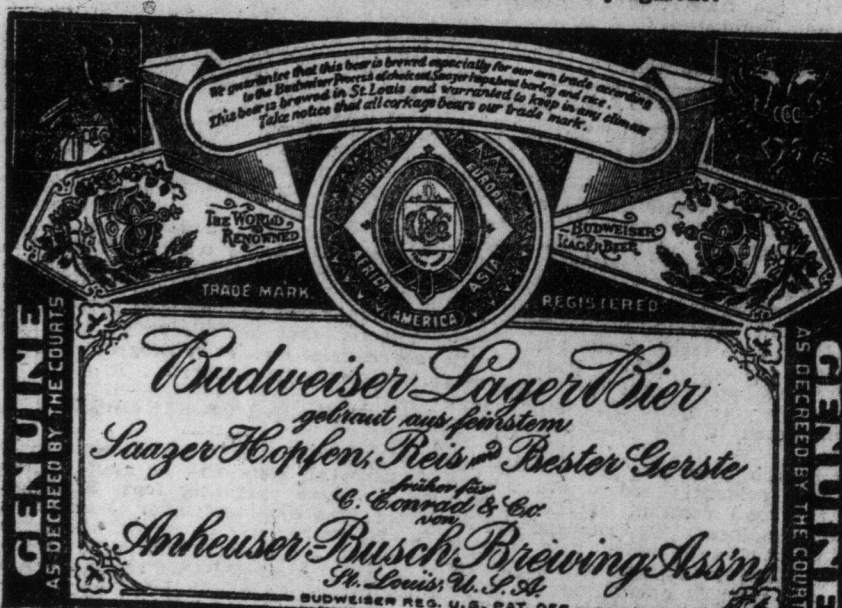 We guarantee that this beer is brewed especially for our own trade according
to the Budweiser Process of choicest Saazer hops, best barley and rice.
This beer is brewed in St. Louis and warranted to keep in any climate
Take notice that all corkage bears our trade mark.
AUSTRALIA
EUROPA
AFRICA
ASIA
AMERICA
THE WORLD
RENOWNED
BUDWEISER
LAGER BEER
TRADE MARK
REGISTERED
GENUINE
AS DECREED BY THE COURTS
Budweiser Lager Bier
gebraut aus feinstem
Saazer Hopfen, Reis und Bester Gerste
früher für
C. Conrad & Co.
von
Anheuser-Busch Brewing Ass'n
St. Louis, U.S.A.
BUDWEISER REG. U.S. PAT. OFF
AS DECREED BY THE COUR
GENUINE